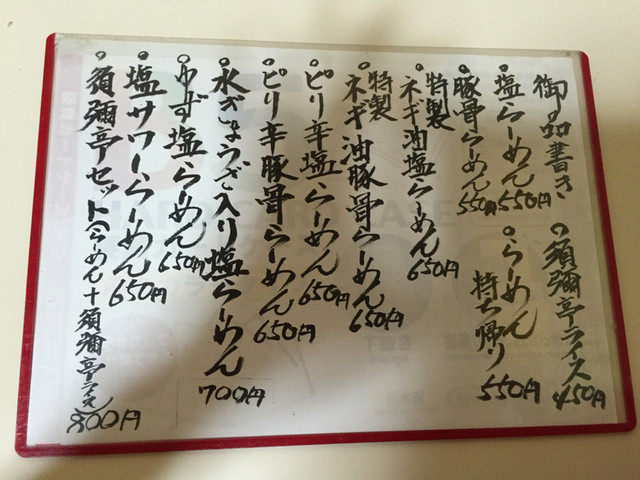 御品書き
須彌亭ライス 450円
塩らーめん 550円
らーめん持ち帰り 550円
豚骨らーめん 550円
特製ネギ油塩らーめん 650円
特製ネギ油豚骨らーめん 650円
ピリ辛塩らーめん 650円
ピリ辛豚骨らーめん 650円
水ぎょうざ入り塩らーめん 700円
ゆず塩らーめん 650円
塩サワーらーめん 650円
須彌亭セット(らーめん+須彌亭ライス) 800円